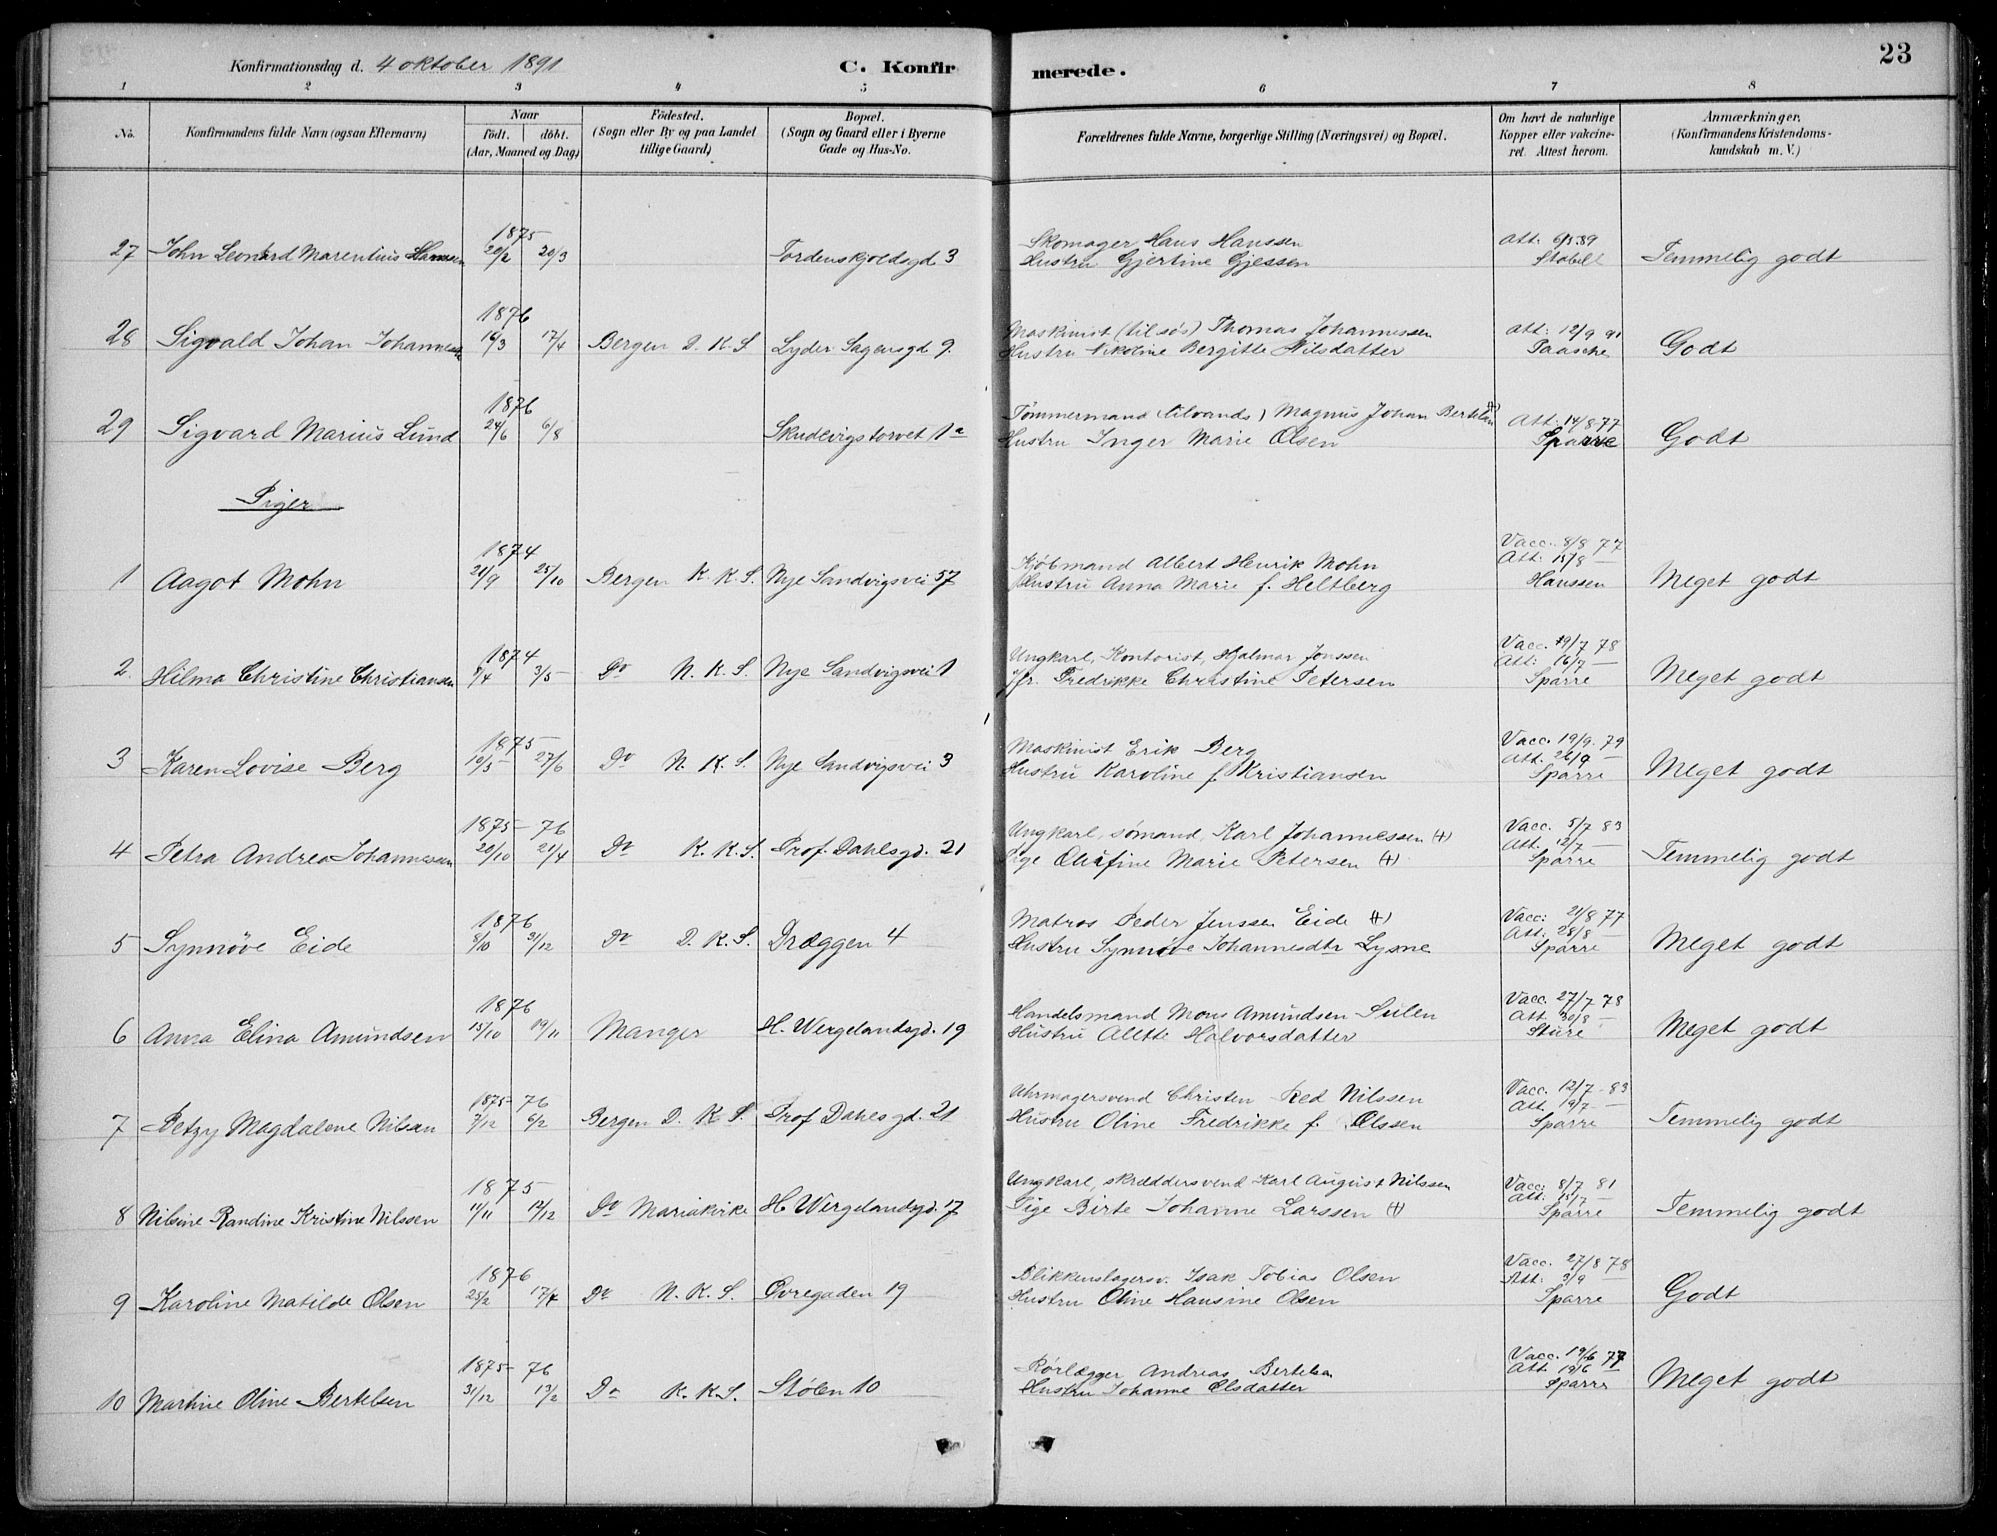 Konfirmationsdag d. 4 oktober 1891 C. Konfirmerede. 23
1 2 3 4 5 6 7 8
No. Konfirmandens fulde Navn (ogsaa Efternavn) Naar födt. döbt. (Aar, Maaned og Dag) Födested. (Sogn eller By og paa Landet tillige Gaard) Bopæl. (Sogn og Gaard eller i Byerne Gade og Hus-No. Forældrenes fulde Navne, borgerlige Stilling (Næringsvei) og Bopæl. Om havt de naturlige Kopper eller vakcineret. Attest herom. Anmærkninger. (Konfirmandens Kristendomskundskab m. V.)
1875 Skomager Hans Hanssen Att. 6/5 89
27 John Leonard Marentius Hanssen 20/2 20/3 Tordenskjoldsgd 3 Hustru Gjertine Gjessen Stabell Temmelig godt
1876 Maskinist (til søs) Thomas Johannessen att: 12/9 91
28 Sigvald Johan Johannessen 16/3 17/4 Bergen D. K. S. Lyder Sagensgd 9. Hustru Nikoline Bergitte Nilsdatter Paasche Godt
1876 Tømmermand (tilvands) Magnus Johan Bertelsen (+) Att. 14/8 77
29 Sigvard Marius Lund 24/6 6/8 Skudevigstorvet 1a Hustru Inger Marie Olsen Sparre Godt
Piger
1874 Kjøbmand Albert Henrik Mohn Vacc. 8/8 77 Att. 15/8 —
1 Aagot Mohn 21/9 25/10 Bergen K. K. S. Nye Sandvigsvei 57 Hustru Anna Marie f. Heltberg Hanssen Meget godt
1874 Ungkarl, Kontorist, Hjalmar Jonssen Vacc. 19/7 78 Att: 16/7 —
2. Hilma Christine Christiansen 9/4 3/5 Do N. K. S. Nye Sandvigsvei 1 Jfr. Fredrikke Christine Petersen Sparre Meget godt
1875 Maskinist Erik Berg Vacc. 19/9. 79 Att. 26/9 —
3 Karen Lovise Berg 10/5 27/6 Do N. K. S. Nye Sandvigsvei 3 Hustru Karoline f. Kristiansen Sparre Meget godt
1875 - 76 Ungkarl, sømand, Karl Johannessen (+) Vacc. 5/7 83 Att. 12/7 —
4 Petra Andrea Johannessen 20/10 21/4 Do K. K. S. Prof. Dahlsgd. 21 Pige Olufine Marie Petersen (+) Sparre Temmelig godt
1876 Matros Peder Jenssen Eide (+) Vacc: 21/8 77 Att: 28/8 —
5 Synnøve Eide 8/10 31/12 Do D. K. S. Dræggen 4 Hustru Synnøve Johannesdtr Lysne Sparre Meget godt
1876 Handelsmand Mons Amundsen Sulen Vacc. 27/7 78 Att. 30/8 —
6 Anna Elina Amundsen 15/10 19/11 Manger H. Wergelandsgd. 19 Hustru Alette Halvorsdatter Sture Meget godt
1875 - 76 Uhrmagersvend Christen Red Nilssen Vacc. 12/7 - 83 Att. 19/7 —
7 Betzy Magdalene Nilsen 7/12 6/2 Bergen D. K. S. Prof Dahlsgd. 21 Hustru Oline Fredrikke f. Olssen Sparre Temmelig godt
1875 Ungkarl, skræddersvend Karl August Nilssen Vacc: 8/7 81 Att. 15/7 —
8 Nilsine Randine Kristine Nilssen 11/11 12/12 Do Mariakirke H Wergelandsgd. 17 Pige Birte Johanne Larssen (+) Sparre Temmelig godt
1876 Blikkenslagersv. Isak Tobias Olsen Vacc. 27/8 78 Att: 3/9 —
9 Karoline Matilde Olsen 25/2 17/4 Do N. K. S. Øvregaden 19 Hustru Oline Hansine Olsen Sparre Godt
1875 - 76 Rørlægger Andreas Bertelsen Vacc. 19/6 77 Att. 19/6 —
10 Martine Oline Bertelsen 31/12 13/2 Do K. K. S. Stølen 10 Hustru Johanne Olsdatter Sparre Meget godt